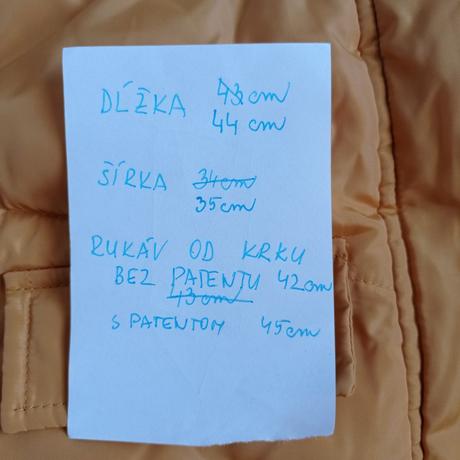 DĹŽKA 43cm
44 cm
ŠÍRKA 34cm
35cm
RUKÁV OD KRKU
BEZ PATENTU 42cm
43cm
S PATENTOM 45cm